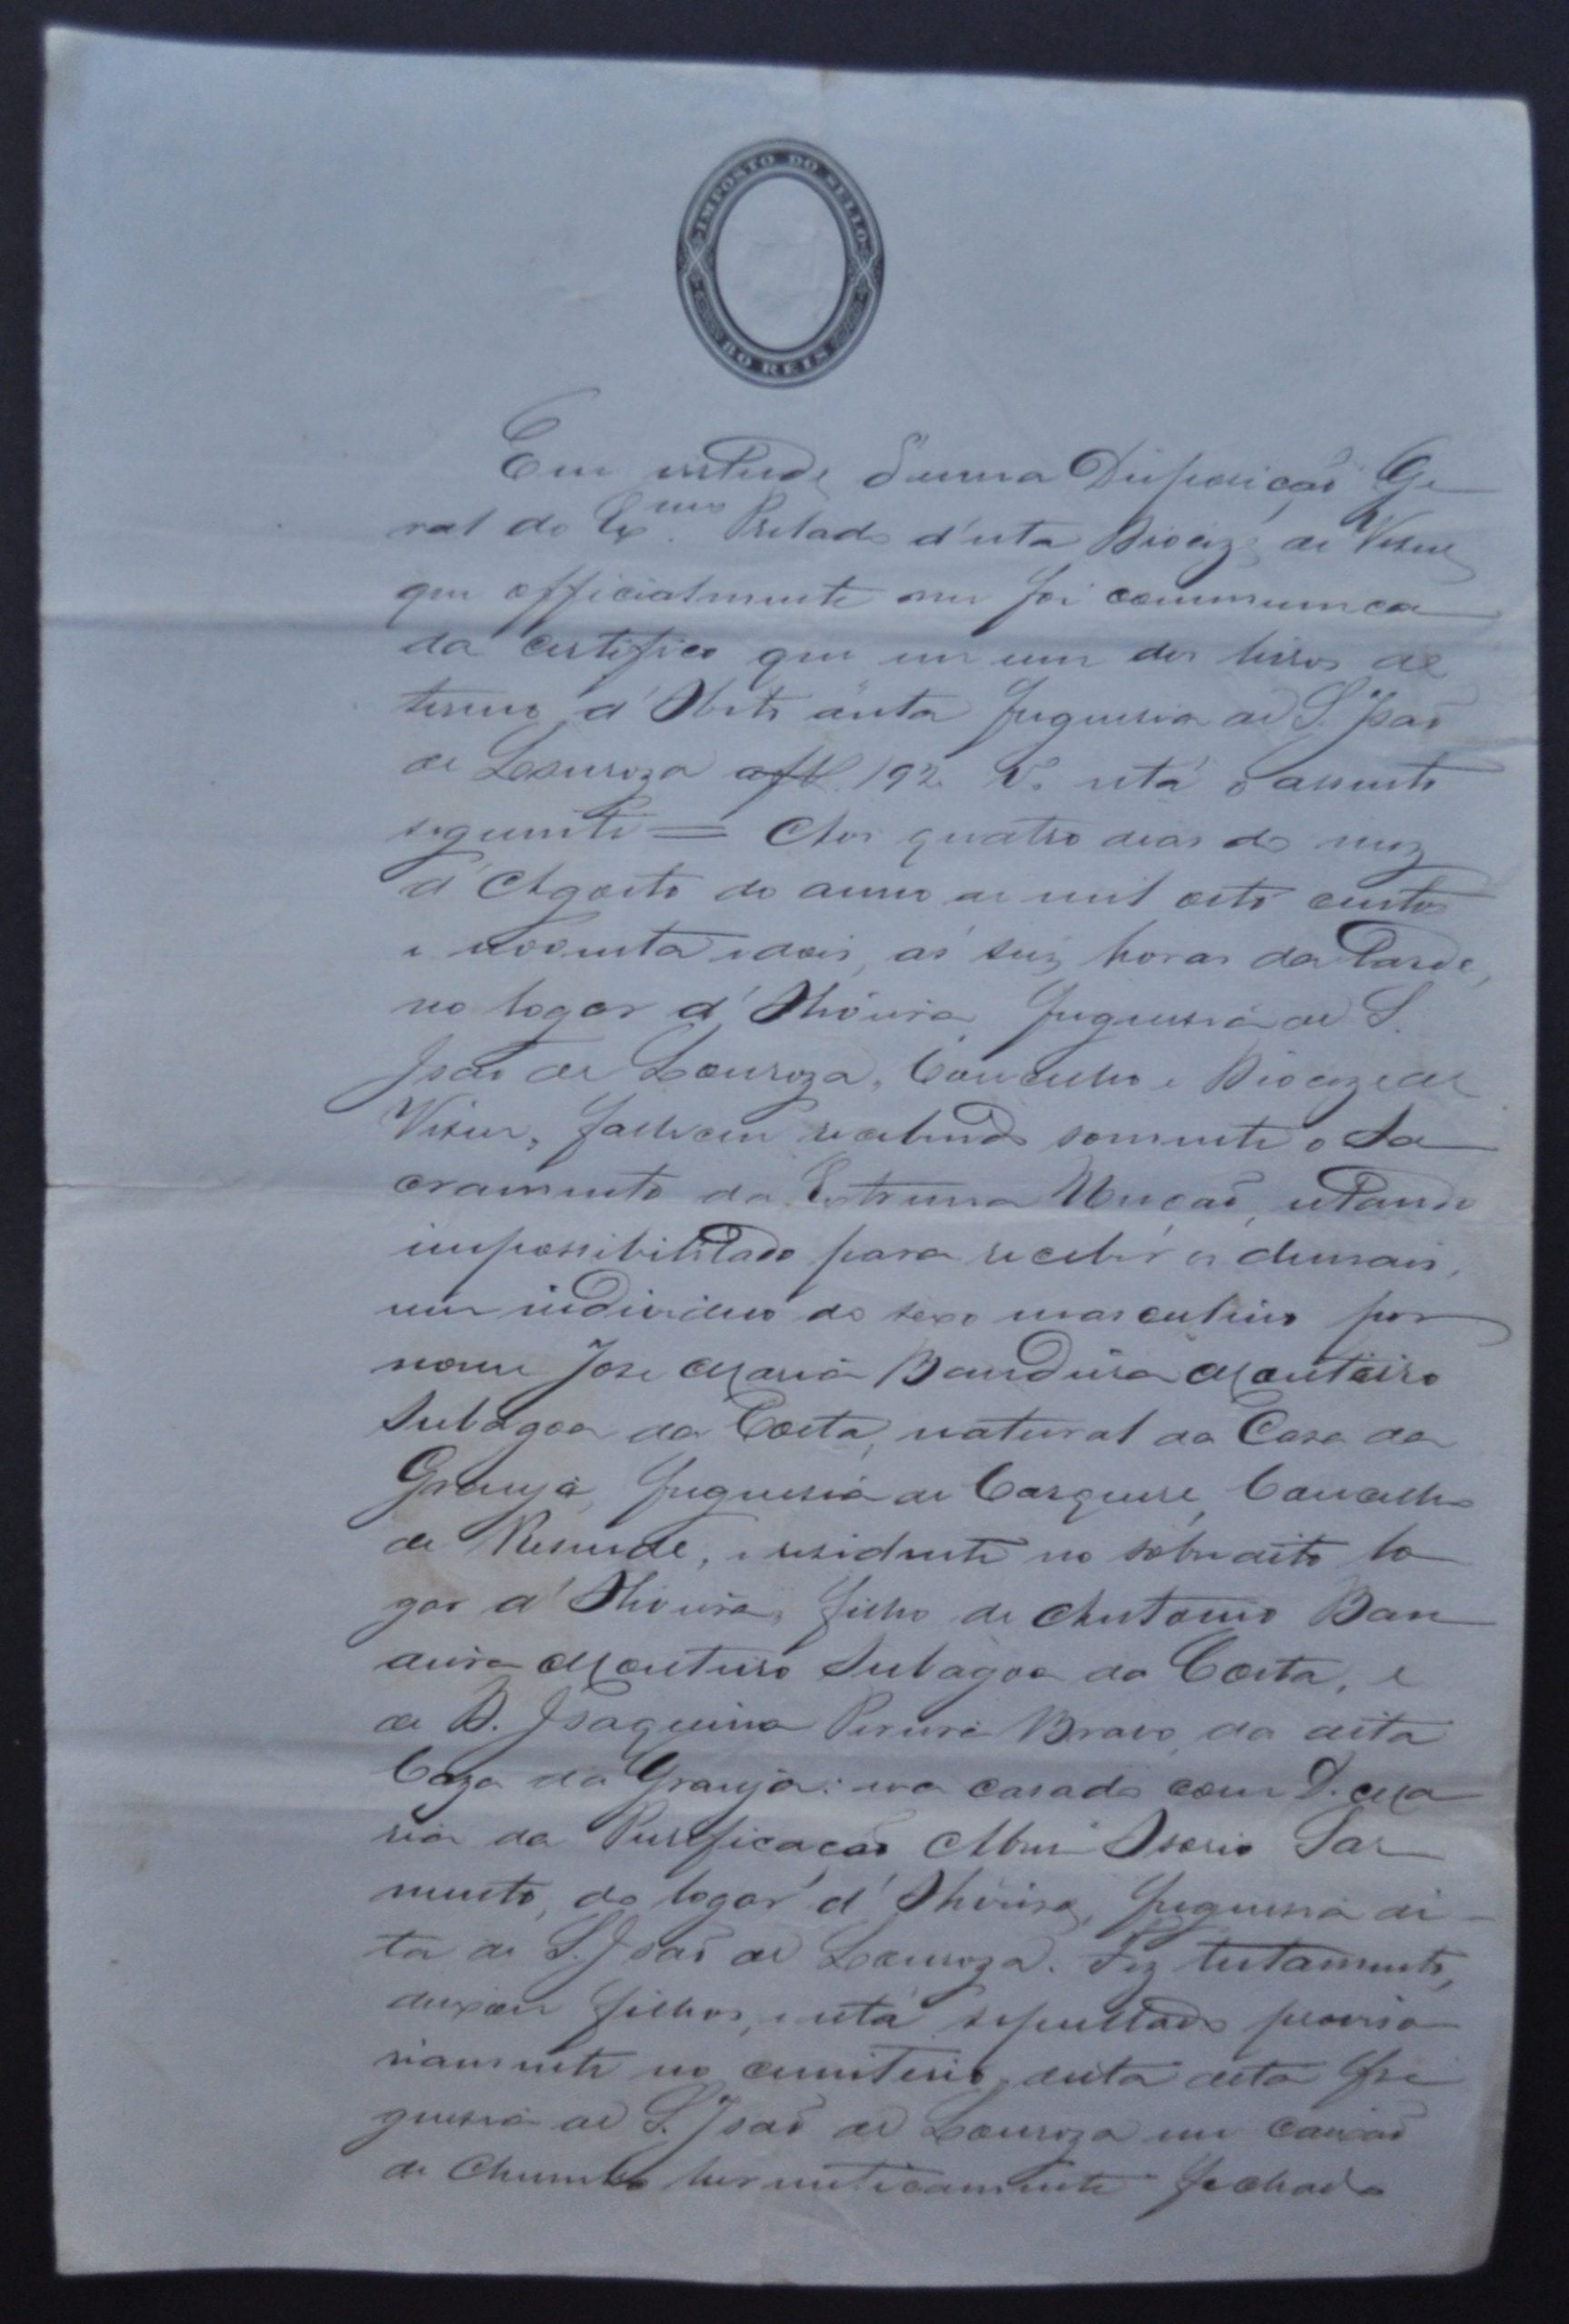 IMPOSTO DO SELLO
80 REIS
Em virtude d'uma Disposição Ge-
ral do Ex.mo Prelado d'esta Dioceze de Viseu
que officialmente me foi communica-
da certifico que em um dos livros de
termo d'Obito d'esta freguesia de S. João
de Lourosa a fl. 192 V. está o assento
seguinte = Aos quatro dias do mez
d'Agosto do anno de mil oito centos
e noventa e dois, ás seis horas da tarde,
no logar d'Oliveira freguesia de S.
João de Louroza, Concelho e Dioceze de
Viseu, falleceu recebendo somente o Sa-
cramento da Extrema Unção, estando
impossibilitado para receber os demais,
um individuo do sexo masculino por
nome José Maria Bandeira Monteiro
Subágoa da Costa, natural da Casa da
Granja, freguesia de Carquere, Concelho
de Resende, e residente no sobredito lo-
gar d'Oliveira, filho de Antonio Ban-
deira Monteiro Subágoa da Costa, e
de D. Joaquina Pereira Bravo, da dita
Caza da Granja: era casado com D. Ma-
ria da Purificação Osorio Sar-
mento, do logar d'Oliveira, freguesia di-
ta de S. João de Louroza. Fez testamento,
deixou filhos, e está sepultado proviso-
riamente no cemiterio desta dita fre-
guesia de S. João de Louroza em caixão
de Chumbo hermeticamente fechado